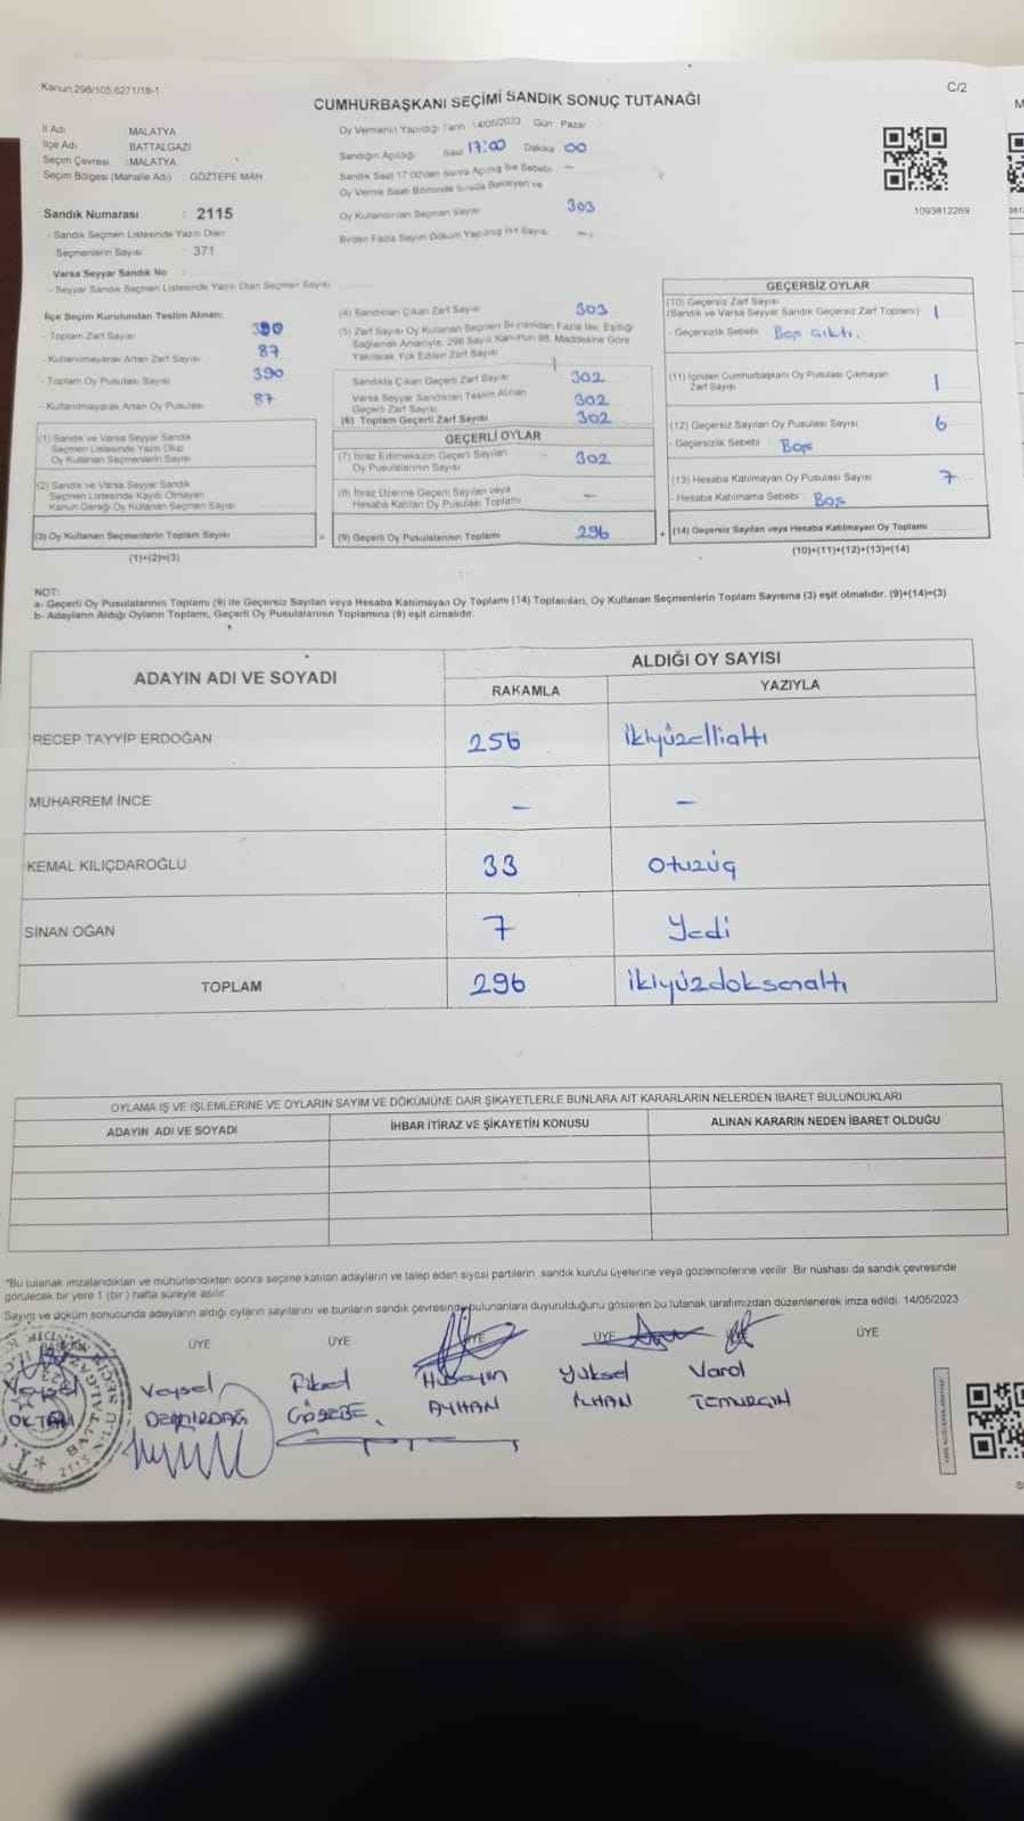 Kanun:298/105,6271/18-1
C/2
CUMHURBAŞKANI SEÇİMİ SANDIK SONUÇ TUTANAĞI
İl Adı MALATYA
İlçe Adı BATTALGAZİ
Seçim Çevresi :MALATYA
Seçim Bölgesi (Mahalle Adı) : GÖZTEPE MAH
Sandık Numarası : 2115
- Sandık Seçmen Listesinde Yazılı Olan
Seçmenlerin Sayısı : 371
Varsa Seyyar Sandık No :
- Seyyar Sandık Seçmen Listesinde Yazılı Olan Seçmen Sayısı
Oy Vermenin Yapıldığı Tarih 14/05/2023 Gün Pazar
Sandığın Açıldığı Saat 17:00 Dakika 00
Oy Kullandırılan Seçmen Sayısı 303
Birden Fazla Sayım Döküm Yapılmış İse Sayısı -
1093812269
İlçe Seçim Kurulundan Teslim Alınan:
- Toplam Zarf Sayısı 390
- Kullanılmayarak Artan Zarf Sayısı 87
- Toplam Oy Pusulası Sayısı 390
- Kullanılmayarak Artan Oy Pusulası 87
(1) Sandık ve Varsa Seyyar Sandık
Seçmen Listesinde Yazılı Olup
Oy Kullanan Seçmenlerin Sayısı
(2) Sandık ve Varsa Seyyar Sandık
Seçmen Listesinde Kayıtlı Olmayan
Kanun Gereği Oy Kullanan Seçmen Sayısı
(3) Oy Kullanan Seçmenlerin Toplam Sayısı
(1)+(2)=(3)
(4) Sandıktan Çıkan Zarf Sayısı 303
(5) Zarf Sayısı Oy Kullanan Seçmen Sayısından Fazla İse, Eşitliği
Sağlamak Amacıyla, 298 Sayılı Kanun'un 98. Maddesine Göre
Yakılarak Yok Edilen Zarf Sayısı
Sandıkta Çıkan Geçerli Zarf Sayısı 302
Varsa Seyyar Sandıktan Teslim Alınan
Geçerli Zarf Sayısı 302
(6) Toplam Geçerli Zarf Sayısı 302
GEÇERLİ OYLAR
(7) İtiraz Edilmeksizin Geçerli Sayılan
Oy Pusulalarının Sayısı 302
(8) İtiraz Üzerine Geçerli Sayılan veya
Hesaba Katılan Oy Pusulası Toplamı -
(9) Geçerli Oy Pusulalarının Toplamı 296
GEÇERSİZ OYLAR
(10) Geçersiz Zarf Sayısı
(Sandık ve Varsa Seyyar Sandık Geçersiz Zarf Toplamı) 1
- Geçersizlik Sebebi Boş çıktı.
(11) İçinden Cumhurbaşkanı Oy Pusulası Çıkmayan
Zarf Sayısı 1
(12) Geçersiz Sayılan Oy Pusulası Sayısı 6
- Geçersizlik Sebebi Boş
(13) Hesaba Katılmayan Oy Pusulası Sayısı 7
- Hesaba Katılmama Sebebi Boş
(14) Geçersiz Sayılan veya Hesaba Katılmayan Oy Toplamı
(10)+(11)+(12)+(13)=(14)
NOT:
a- Geçerli Oy Pusulalarının Toplamı (9) ile Geçersiz Sayılan veya Hesaba Katılmayan Oy Toplamı (14) Toplamları, Oy Kullanan Seçmenlerin Toplam Sayısına (3) eşit olmalıdır. (9)+(14)=(3)
b- Adayların Aldığı Oyların Toplamı, Geçerli Oy Pusulalarının Toplamına (9) eşit olmalıdır.
ADAYIN ADI VE SOYADI
ALDIĞI OY SAYISI
RAKAMLA YAZIYLA
RECEP TAYYİP ERDOĞAN 256 ikiyüzellialtı
MUHARREM İNCE - -
KEMAL KILIÇDAROĞLU 33 otuzüç
SİNAN OĞAN 7 Yedi
TOPLAM 296 ikiyüzdoksanaltı
OYLAMA İŞ VE İŞLEMLERİNE VE OYLARIN SAYIM VE DÖKÜMÜNE DAİR ŞİKAYETLERLE BUNLARA AİT KARARLARIN NELERDEN İBARET BULUNDUKLARI
ADAYIN ADI VE SOYADI İHBAR İTİRAZ VE ŞİKAYETİN KONUSU ALINAN KARARIN NEDEN İBARET OLDUĞU
*Bu tutanak imzalandıktan ve mühürlendikten sonra seçime katılan adayların ve talep eden siyasi partilerin sandık kurulu üyelerine veya gözlemcilerine verilir. Bir nüshası da sandık çevresinde
görülecek bir yere 1 (bir) hafta süreyle asılır.
Sayım ve döküm sonucunda adayların aldığı oyların sayılarını ve bunların sandık çevresinde bulunanlara duyurulduğunu gösteren bu tutanak tarafımızdan düzenlenerek imza edildi. 14/05/2023
ÜYE ÜYE ÜYE ÜYE ÜYE
Veysel Hüseyin Yüksel Varol
OKTAY DEMİRDAĞ AYHAN İLHAN